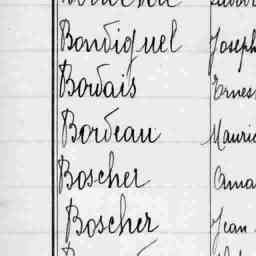 Bondiguel Joseph
Bordais Ernes
Bordeau Mauric
Boscher Ama
Boscher Jean